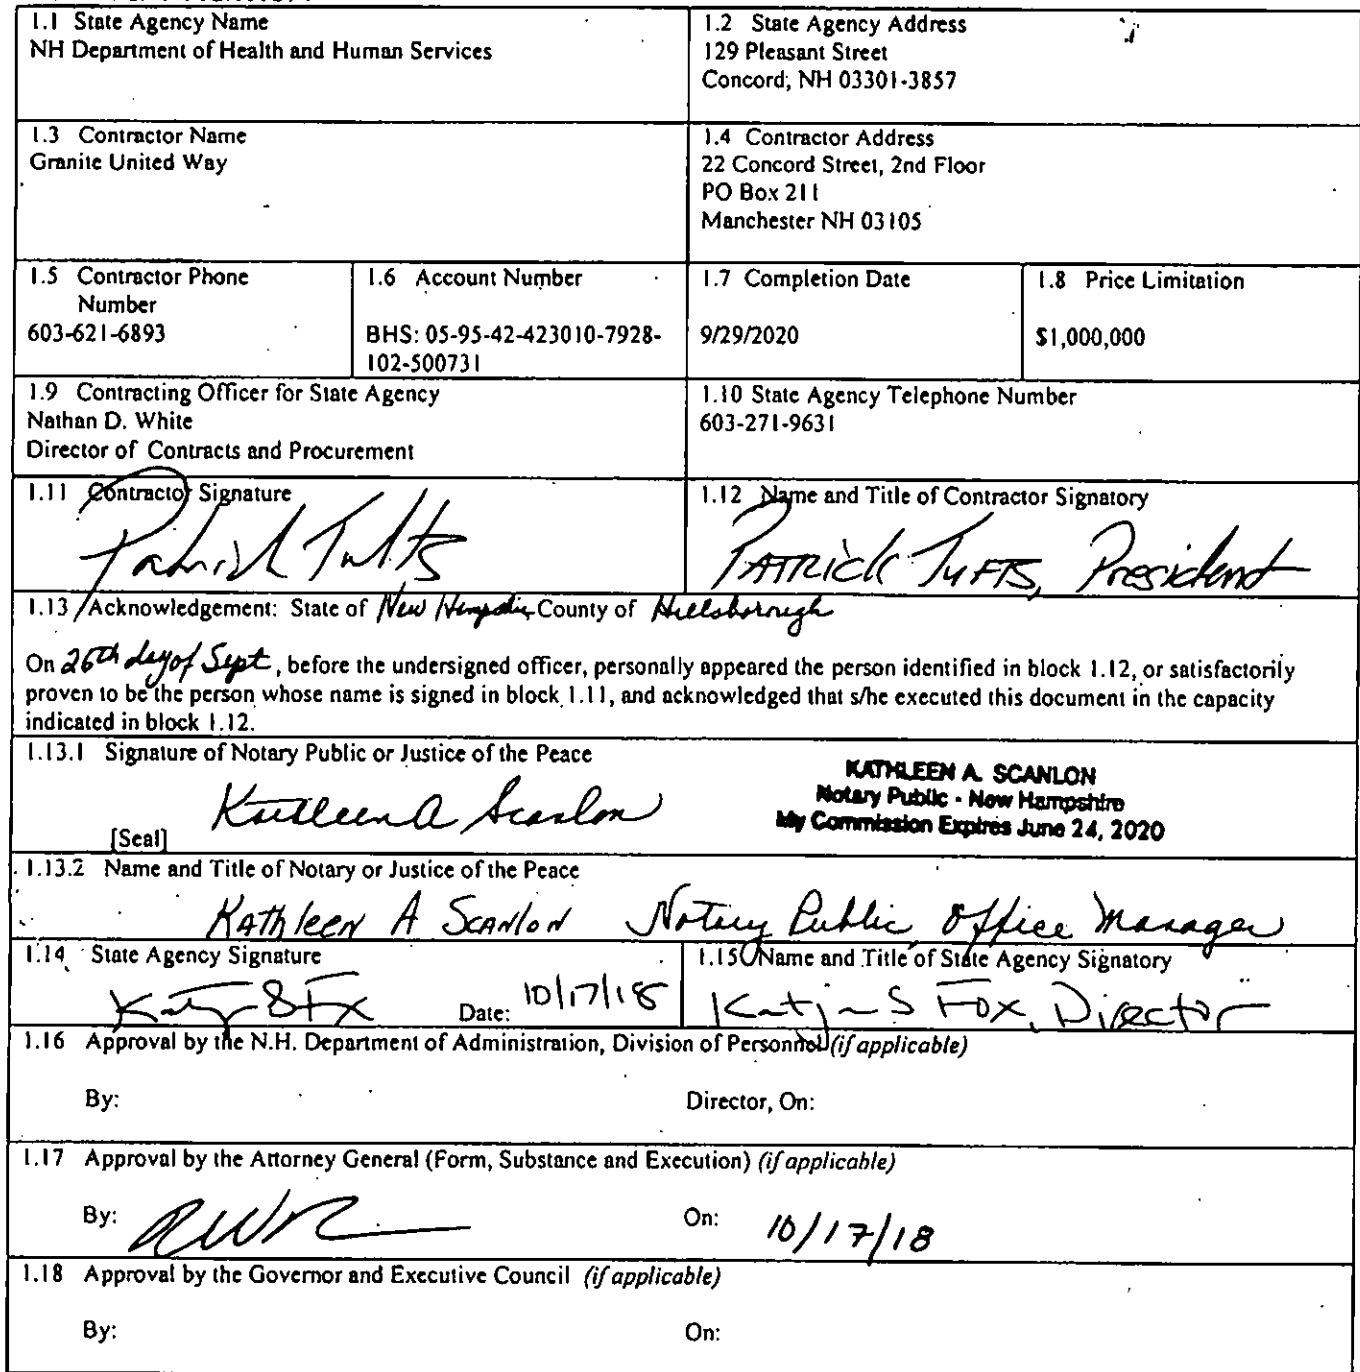 1.1 State Agency Name
NH Department of Health and Human Services
1.2 State Agency Address
129 Pleasant Street
Concord, NH 03301-3857
1.3 Contractor Name
Granite United Way
1.4 Contractor Address
22 Concord Street, 2nd Floor
PO Box 211
Manchester NH 03105
1.5 Contractor Phone
Number
603-621-6893
1.6 Account Number
BHS: 05-95-42-423010-7928-
102-500731
1.7 Completion Date
9/29/2020
1.8 Price Limitation
$1,000,000
1.9 Contracting Officer for State Agency
Nathan D. White
Director of Contracts and Procurement
1.10 State Agency Telephone Number
603-271-9631
1.11 Contractor Signature
Patrick Tufts
1.12 Name and Title of Contractor Signatory
PATRICK TUFTS, President
1.13 Acknowledgement: State of New Hampshire County of Hillsborough
On 26th day of Sept, before the undersigned officer, personally appeared the person identified in block 1.12, or satisfactorily
proven to be the person whose name is signed in block 1.11, and acknowledged that s/he executed this document in the capacity
indicated in block 1.12.
1.13.1 Signature of Notary Public or Justice of the Peace
KATHLEEN A. SCANLON
Notary Public - New Hampshire
My Commission Expires June 24, 2020
Kathleen A Scanlon
[Seal]
1.13.2 Name and Title of Notary or Justice of the Peace
Kathleen A Scanlon Notary Public, Office Manager
1.14 State Agency Signature
Date: 10/17/18
1.15 Name and Title of State Agency Signatory
Katja S Fox, Director
1.16 Approval by the N.H. Department of Administration, Division of Personnel (if applicable)
By:
Director, On:
1.17 Approval by the Attorney General (Form, Substance and Execution) (if applicable)
By:
On: 10/17/18
1.18 Approval by the Governor and Executive Council (if applicable)
By:
On: